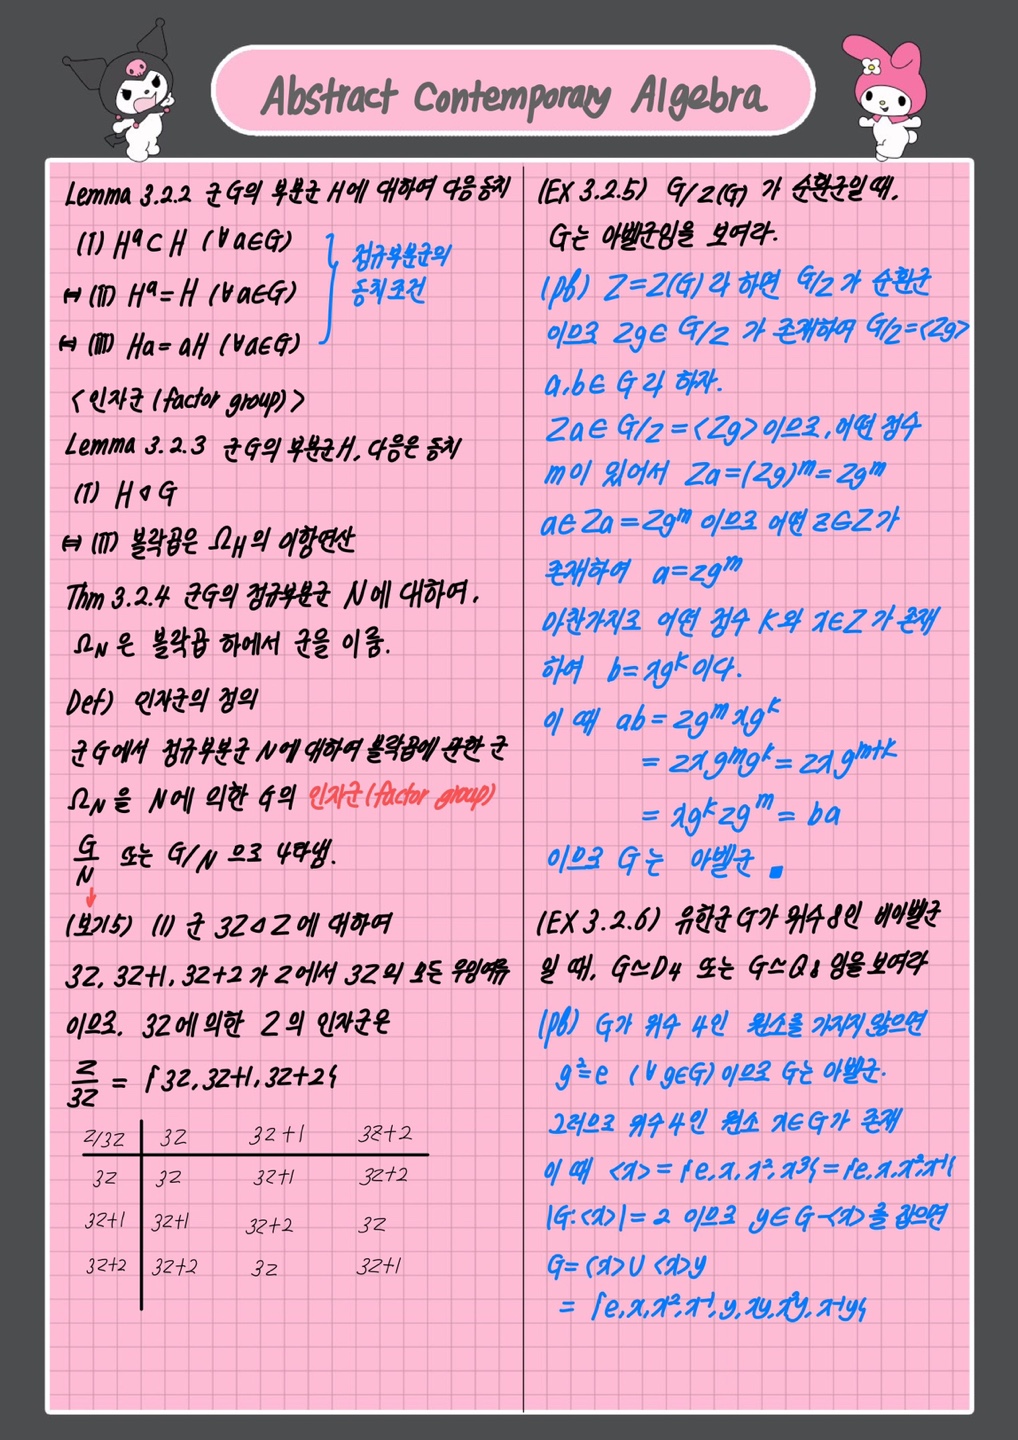 Abstract Contemporary Algebra
Lemma 3.2.2 군 G의 부분군 H에 대하여 다음 동치
(I) Hᵃ ⊂ H (∀a∈G)
⇔ (II) Hᵃ = H (∀a∈G)
⇔ (III) Ha = aH (∀a∈G)
정규부분군의
동치조건
<인자군 (factor group)>
Lemma 3.2.3 군 G의 부분군 H, 다음은 동치
(I) H ◁ G
⇔ (II) 블락곱은 Ω_H의 이항연산
Thm 3.2.4 군G의 정규부분군 N에 대하여,
Ω_N은 블락곱 하에서 군을 이룸.
Def) 인자군의 정의
군 G에서 정규부분군 N에 대하여 블락곱에 관한 군
Ω_N을 N에 의한 G의 인자군(factor group)
G/N 또는 G/N 으로 나타냄.
↓
(보기5) (1) 군 3Z◁Z에 대하여
3Z, 3Z+1, 3Z+2가 Z에서 3Z의 모든 우잉여류
이므로, 3Z에 의한 Z의 인자군은
Z/3Z = {3Z, 3Z+1, 3Z+2}
Z/3Z 3Z 3Z+1 3Z+2
3Z 3Z 3Z+1 3Z+2
3Z+1 3Z+1 3Z+2 3Z
3Z+2 3Z+2 3Z 3Z+1
(EX 3.2.5) G/Z(G) 가 순환군일 때,
G는 아벨군임을 보여라.
(pf) Z=Z(G)라 하면 G/Z가 순환군
이므로 Zg∈G/Z 가 존재하여 G/Z=<Zg>
a,b∈G라 하자.
Za∈G/Z=<Zg>이므로, 어떤 정수
m이 있어서 Za=(Zg)ᵐ=Zgᵐ
a∈Za=Zgᵐ 이므로 어떤 z∈Z가
존재하여 a=zgᵐ
마찬가지로 어떤 정수 K와 x∈Z가 존재
하여 b=xgᵏ이다.
이 때 ab=zgᵐxgᵏ
=zxgᵐgᵏ=zxgᵐ⁺ᵏ
=xgᵏzgᵐ=ba
이므로 G는 아벨군 ■
(EX 3.2.6) 유한군 G가 위수 8인 비아벨군
일 때, G≃D₄ 또는 G≃Q₈ 임을 보여라
(pf) G가 위수 4인 원소를 가지지 않으면
g²=e (∀g∈G)이므로 G는 아벨군.
그러므로 위수 4인 원소 x∈G가 존재
이 때 <x>={e,x,x²,x³}={e,x,x²,x⁻¹}
|G:<x>|=2 이므로 y∈G-<x>를 잡으면
G=<x>∪<x>y
={e,x,x²,x⁻¹,y,xy,x²y,x⁻¹y}